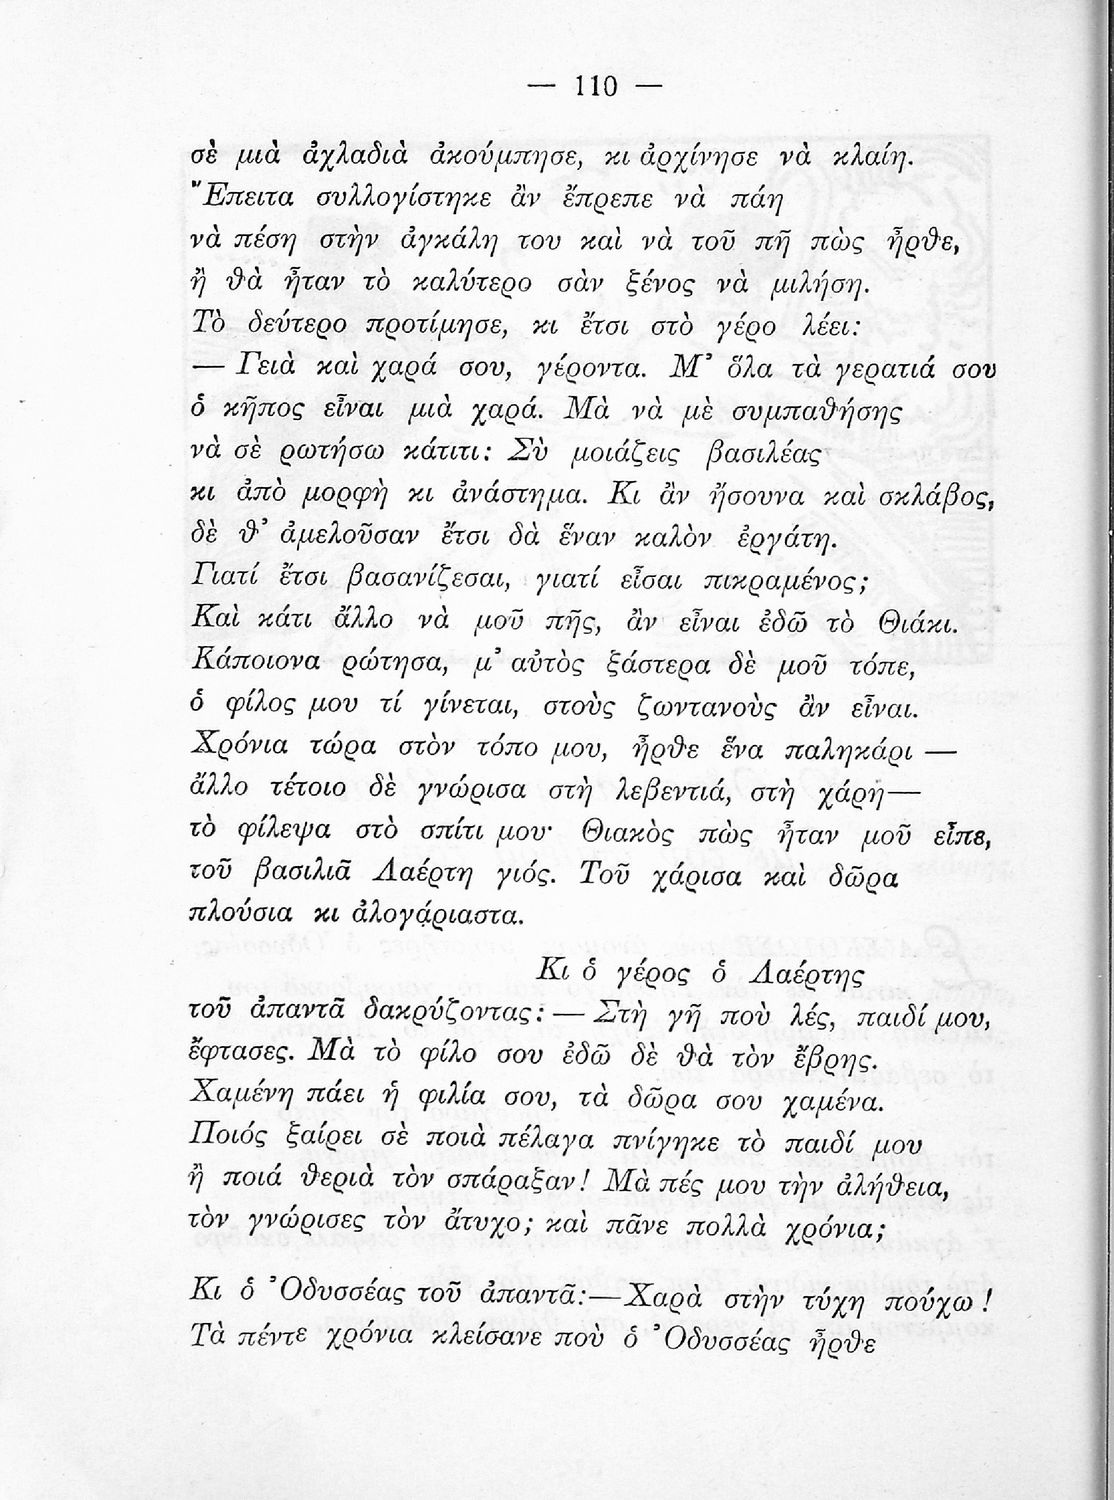 — 110 —
σὲ μιὰ ἀχλαδιὰ ἀκούμπησε, κι ἀρχίνησε νὰ κλαίη.
Ἔπειτα συλλογίστηκε ἂν ἔπρεπε νὰ πάη
νὰ πέση στὴν ἀγκάλη του καὶ νὰ τοῦ πῆ πὼς ἦρθε,
ἢ θὰ ἦταν τὸ καλύτερο σὰν ξένος νὰ μιλήση.
Τὸ δεύτερο προτίμησε, κι ἔτσι στὸ γέρο λέει:
— Γειὰ καὶ χαρά σου, γέροντα. Μ᾽ ὅλα τὰ γερατιά σου
ὁ κῆπος εἶναι μιὰ χαρά. Μὰ νὰ μὲ συμπαθήσης
νὰ σὲ ρωτήσω κάτιτι: Σὺ μοιάζεις βασιλέας
κι ἀπὸ μορφὴ κι ἀνάστημα. Κι ἂν ἤσουνα καὶ σκλάβος,
δὲ θ᾽ ἀμελοῦσαν ἔτσι δὰ ἕναν καλὸν ἐργάτη.
Γιατί ἔτσι βασανίζεσαι, γιατί εἶσαι πικραμένος;
Καὶ κάτι ἄλλο νὰ μοῦ πῆς, ἂν εἶναι ἐδῶ τὸ Θιάκι.
Κάποιονα ρώτησα, μ᾽ αὐτὸς ξάστερα δὲ μοῦ τόπε,
ὁ φίλος μου τί γίνεται, στοὺς ζωντανοὺς ἂν εἶναι.
Χρόνια τώρα στὸν τόπο μου, ἦρθε ἕνα παληκάρι —
ἄλλο τέτοιο δὲ γνώρισα στὴ λεβεντιά, στὴ χάρη—
τὸ φίλεψα στὸ σπίτι μου· Θιακὸς πὼς ἦταν μοῦ εἶπε,
τοῦ βασιλιᾶ Λαέρτη γιός. Τοῦ χάρισα καὶ δῶρα
πλούσια κι ἀλογάριαστα.
Κι ὁ γέρος ὁ Λαέρτης
τοῦ ἀπαντᾶ δακρύζοντας: — Στὴ γῆ ποὺ λές, παιδί μου,
ἔφτασες. Μὰ τὸ φίλο σου ἐδῶ δὲ θὰ τὸν ἔβρης.
Χαμένη πάει ἡ φιλία σου, τὰ δῶρα σου χαμένα.
Ποιός ξαίρει σὲ ποιὰ πέλαγα πνίγηκε τὸ παιδί μου
ἢ ποιά θεριὰ τὸν σπάραξαν! Μὰ πές μου τὴν ἀλήθεια,
τὸν γνώρισες τὸν ἄτυχο; καὶ πᾶνε πολλὰ χρόνια;
Κι ὁ Ὀδυσσέας τοῦ ἀπαντᾶ:—Χαρὰ στὴν τύχη πούχω!
Τὰ πέντε χρόνια κλείσανε ποὺ ὁ Ὀδυσσέας ἦρθε